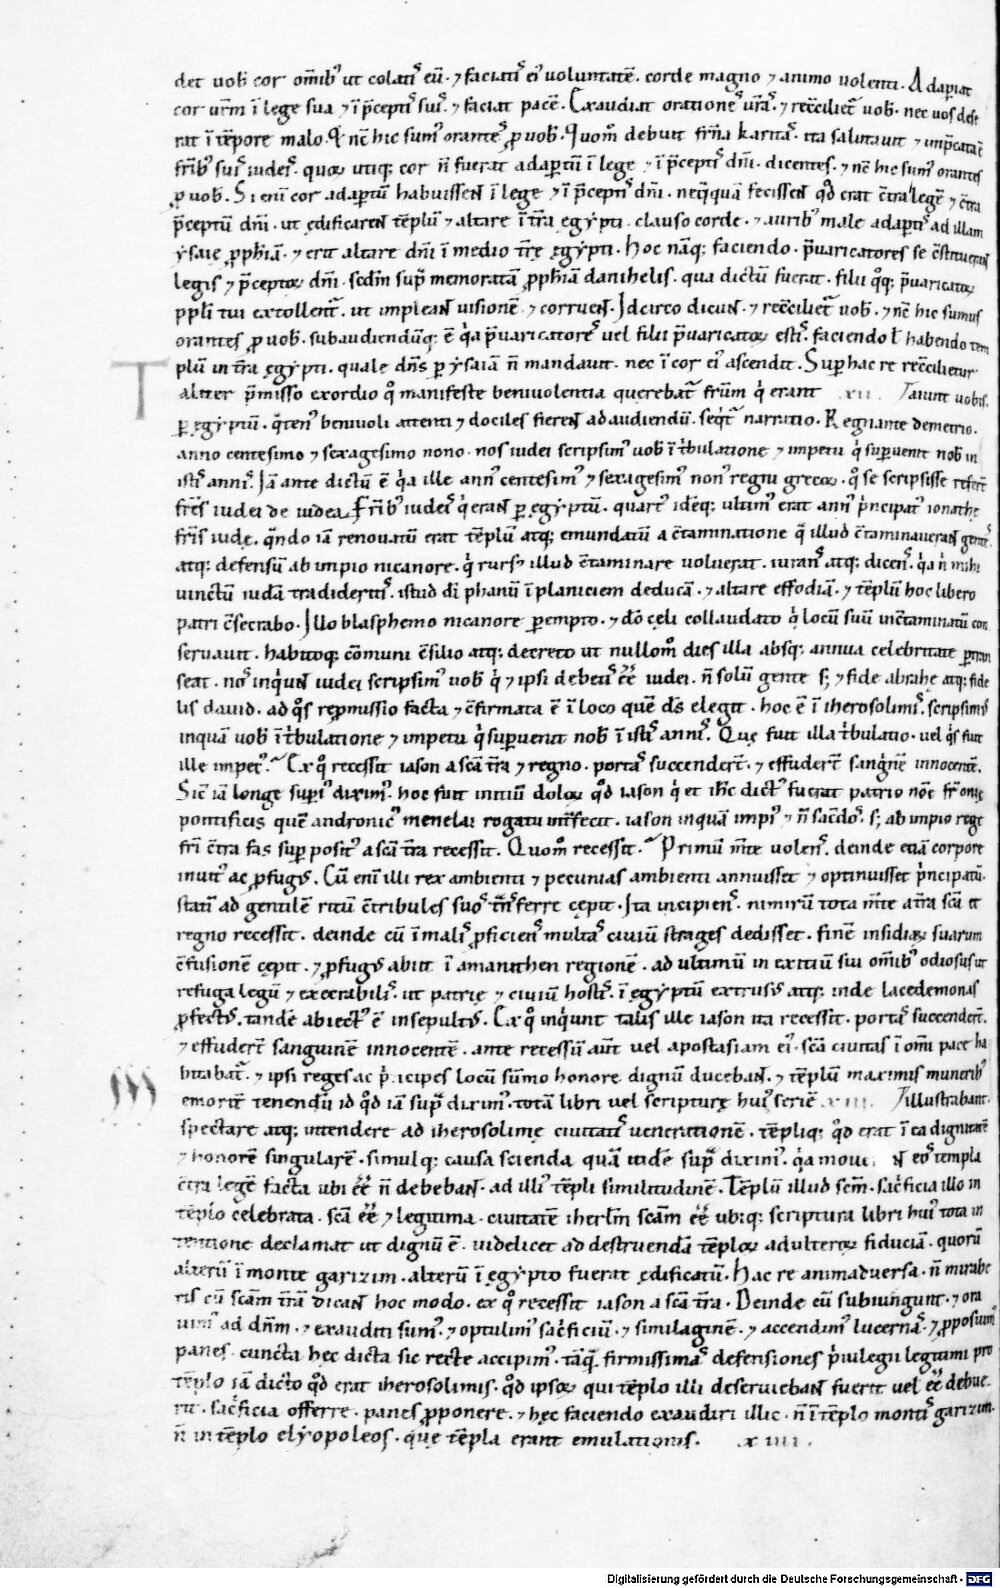 det uob cor omib' ut colatis eu. ⁊ faciatis ei' uoluntate. corde magno ⁊ animo uolenti. Adapiat
cor urm i lege sua ⁊ i pceptis suis. ⁊ faciat pace. Exaudiat oratione ura. ⁊ reccilietur uob. nec uos dese
rat i tepore malo. Et nc hic sum' orantes p uob. Quom debuit frna karitas. ita salutauit ⁊ impcata e
frib' suis iudeis. quox utiq; cor n fuerat adaptu i lege ⁊ i pceptis dni. dicentes. ⁊ nc hic sum' orantes
p uob. Si eni cor adaptu habuissent i lege ⁊ i pceptis dni. neqqua fecissent qd erat ctra lege ⁊ ctra
pceptu dni. ut edificarent teplu ⁊ altare i tra egypti. clauso corde. ⁊ aurib' male adaptis ad illam
ysaie pphia. ⁊ erit altare dni i medio tre egypti. hoc naq; faciendo. puaricatores se cstituerunt
legis ⁊ pceptox dni. scdm sup memorata pphia danihelis. qua dictu fuerat. filii qq; puaricatox
ppli tui extollent. ut impleant uisione ⁊ corruent. Idcirco dicunt. ⁊ reccilietur uob. ⁊ nc hic sumus
orantes p uob. subaudienduq; e qa puaricatores uel filii puaricatox estis. faciendo l habendo tem
plu in tra egypti. quale dns p ysaia n mandauit. nec i cor ei' ascendit. Sup hac re reccilietur
Taliter pmisso exordio qo manifeste beniuolentia querebat frum qi erant xii. Iaiunt uobis.
p egyptu. qten' beniuoli attenti ⁊ dociles fierent ad audiendu. seqtur narratio. Regnante demetrio.
anno centesimo ⁊ sexagesimo nono. nos iudei scripsim' uob i tbulatione ⁊ impetu qi supuenit nob in
istis annis. Ia ante dictu e qa ille ann' centesim' ⁊ sexagesim' non' regni grecox. qo se scripsisse referunt
fres iudei de iudea frib' iudeis qi erant p egyptu. quart' ideq; ultim' erat ann' pncipat' ionathe
fris iude. qndo ia renouatu erat teplu atq; emundatu a ctaminatione q illud ctaminauerant gentes
atq; defensu ab impio nicanore. qi rurs' illud ctaminare uoluerat. iurans atq; dicens. qa n mihi
uinctu iuda tradideritis. istud di phanu i planiciem deduca. ⁊ altare effodia. ⁊ teplu hoc libero
patri csecrabo. Illo blasphemo nicanore pempto. ⁊ do celi collaudato qi locu suu inctaminatu con
seruauit. habitoq; comuni csilio atq; decreto ut nullom' dies illa absq; annua celebritate ptran
seat. nos inqunt iudei scripsim' uob qi ⁊ ipsi debetis ee iudei. n solu gente s; ⁊ fide abrahe atq; fide
lis dauid. ad qos repmissio facta ⁊ cfirmata e i loco que ds elegit. hoc e i iherosolimis. scripsim'
inqua uob i tbulatione ⁊ impetu qi supuenit nob i istis annis. Que fuit illa tbulatio. uel qis fuit
ille impet'. Ex qo recessit iason a sca tra ⁊ regno. portas succenderunt. ⁊ effuderunt sanguine innocente.
Sic ia longe superi' dixim'. hoc fuit initiu dolox qd iason qi et ihc dict' fuerat patrio noie fr onie
pontificis que andronic' menelai rogatu intfecit. iason inqua impi' ⁊ n sacdos. s; ab impio rege
fri ctra fas sup posit' a sca tra recessit. Quom recessit. Primu mte uolens. deinde etia corpore
inuit' ac pfug'. Cu eni illi rex ambienti ⁊ pecunias ambienti annuisset ⁊ optinuisset pncipatu.
stati ad gentile ritu ctribules suos tnsferre cepit. Ita incipiens. nimiru tota mte a tra sca et
regno recessit. deinde cu i malis pficiens multas ciuiu strages dedisset. fine insidiax suarum
cfusione cepit. ⁊ pfug' abiit i amaniten regione. ad ultimu in exitiu sui omib' odiosus ut
refuga legu ⁊ execrabilis. ut patrie ⁊ ciuiu hostis. i egyptu extrusus atq; inde lacedemonas
pfect'. tande abiect' e insepult'. Ex qo inqunt talis ille iason ita recessit. portas succenderunt.
⁊ effuderunt sanguine innocente. ante recessu aut uel apostasiam ei'. sca ciuitas i omi pace ha
bitabat. ⁊ ipsi reges ac pricipes locu sumo honore dignu ducebant. ⁊ teplu maximis munerib'
emorie tenendu id qd ia sup dixim'. tota libri uel scripture hui' serie xiii. Iillustrabant.
spectare atq; intendere ad iherosolime ciuitatis ueneratione. tepliq; qd erat i ea dignitate
⁊ honore singulare. simulq; causa scienda qua inde sup dixim'. qa moue nt eos templa
ctra lege facta ubi ee n debebant. ad illi' tepli similitudine. Teplu illud scm. sacficia illo in
teplo celebrata. sca ee ⁊ legitima. ciuitate iherlm scam ee ubiq; scriptura libri hui' tota in
tentione declamat ut dignu e. uidelicet ad destruenda teplox adulterox fiducia. quoru
alteru i monte garizim. alteru i egypto fuerat edificatu. hac re animaduersa. n mirabe
ris cu scam tra dicant hoc modo. ex qo recessit iason a sca tra. Deinde cu subiungunt. ⁊ ora
uim' ad dnm. ⁊ exauditi sum'. ⁊ optulim' sacficiu. ⁊ similagine. ⁊ accendim' lucernas. ⁊ pposuim'
panes. cuncta hec dicta sic recte accipim'. taq firmissimas defensiones piuilegii legitimi pro
teplo ia dicto qd erat iherosolimis. qd ipsox qui teplo illi deseruiebant fuerit uel ee debue
rit. sacficia offerre. panes pponere. ⁊ hec faciendo exaudiri illic. n i teplo montis garizim.
n in teplo elyopoleos. que tepla erant emulationis. xiiii.
Digitalisierung gefördert durch die Deutsche Forschungsgemeinschaft - DFG